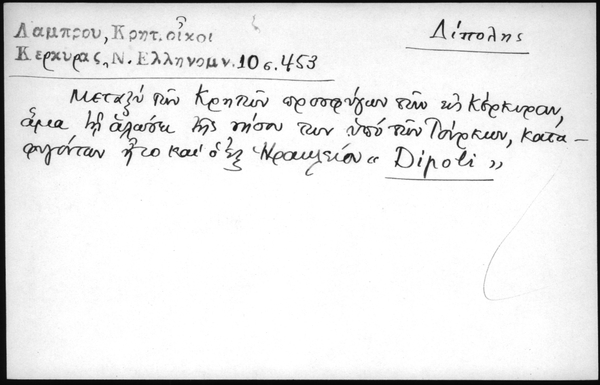 Λαμπρου, Κρητ. οἶκοι
Κερκυρας, Ν. Ελληνομν. 10 σ. 453
Δίπολης
Μεταξύ τῶν Κρητῶν προσφύγων τῶν εἰς Κέρκυραν,
ἅμα τῇ ἁλώσει τῆς νήσου των ὑπό τῶν Τούρκων, κατα-
φυγόντων ἦτο καί ὁ ἐξ Ἡρακλείου « Dipoli »